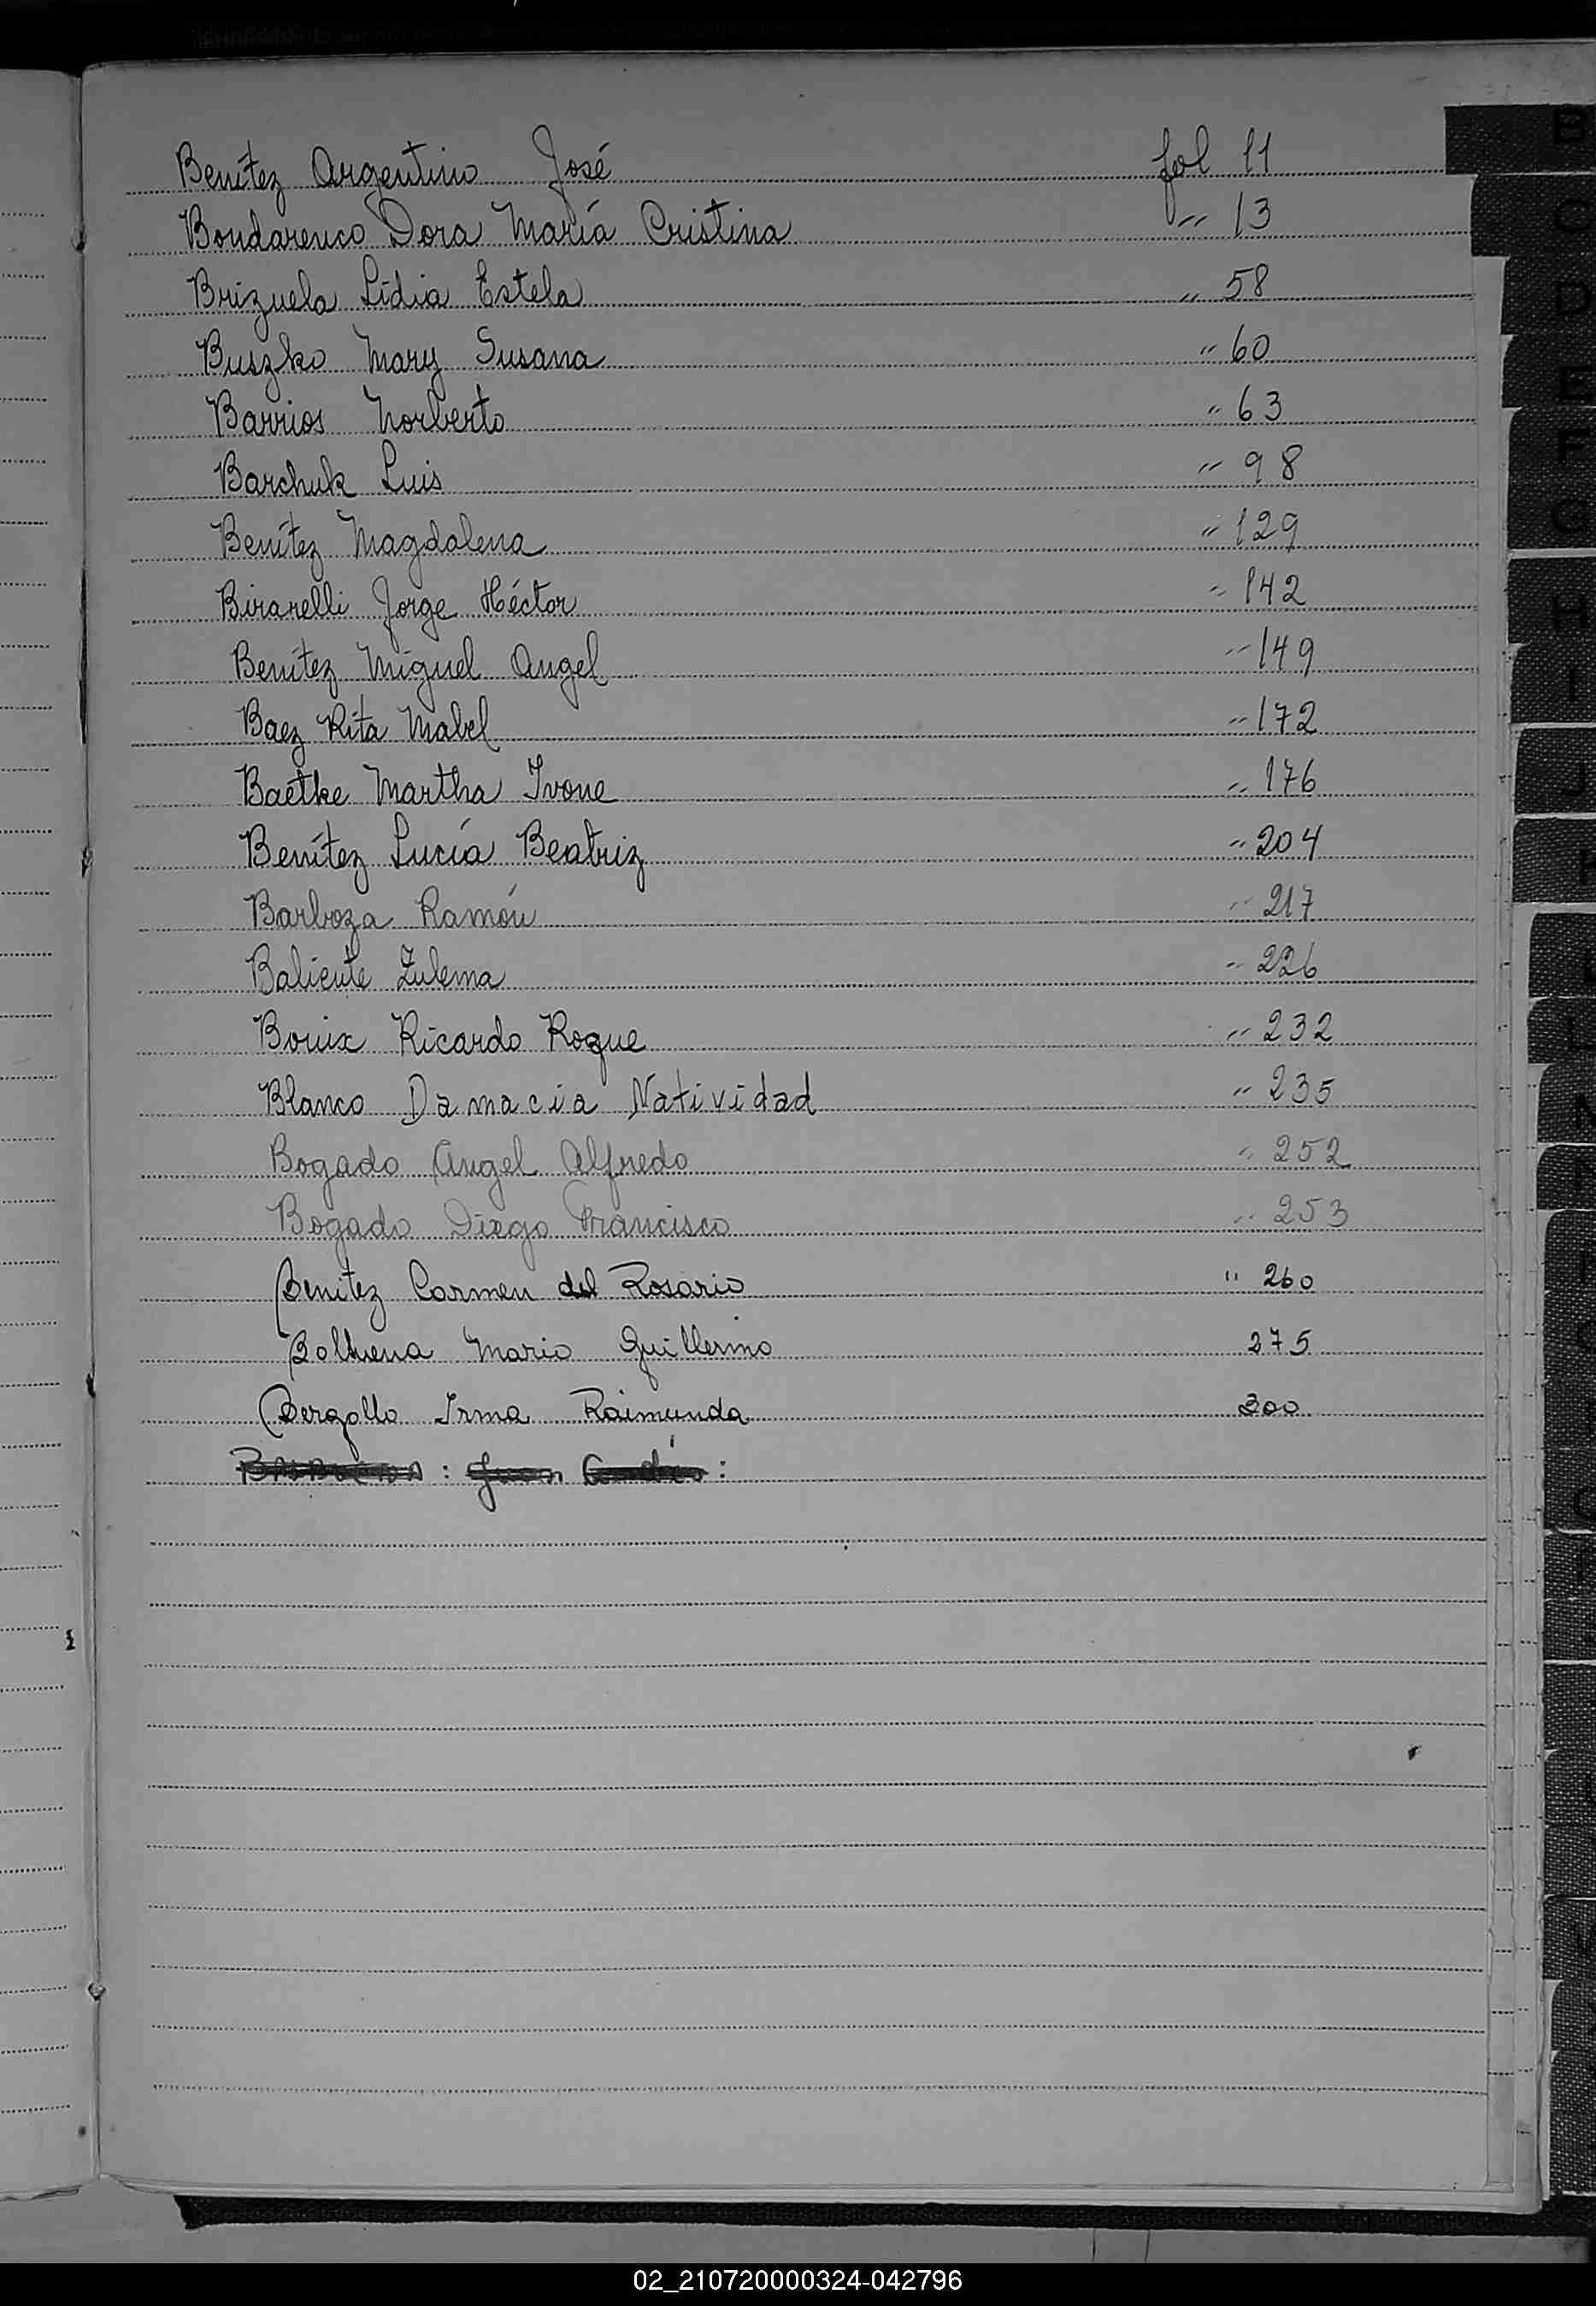 Benítez Argentino José fol 11
Bondarenco Dora María Cristina " 13
Brizuela Lidia Estela " 58
Buszko Mary Susana " 60
Barrios Norberto " 63
Barchuk Luis " 98
Benítez Magdalena " 129
Birarelli Jorge Héctor " 142
Benítez Miguel Angel " 149
Baez Rita Mabel " 172
Baetke Martha Ivone " 176
Benítez Lucía Beatriz " 204
Barboza Ramón " 217
Baliente Zulema " 226
Bouix Ricardo Roque " 232
Blanco Damacia Natividad " 235
Bogado Angel Alfredo " 252
Bogado Diego Francisco " 253
Benitez Carmen del Rosario " 260
Mario Guillermo 275
Bergollo Irma Raimunda 300
: Juan :
B
C
D
E
F
G
H
I
J
02_210720000324-042796